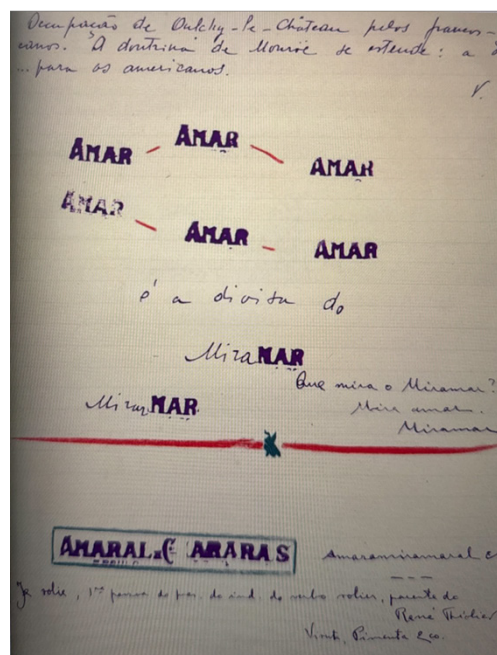 Occupação de Oulchy-le-Château pelos franco-
canos. A doutrina de Monroe se estende: a
... para os americanos.
V.
AMAR — AMAR — AMAR
AMAR — AMAR — AMAR
é a divisa do
MiraMAR
Que mira o Miramar?
MirarMAR
Mira amar.
Miramar
AMARAL & C ARARAS
Amaramiramaral
Je rolie, 1re do ind. do verbo rolier, parente do
René Thiollier
Vionti, Pimenta & co.